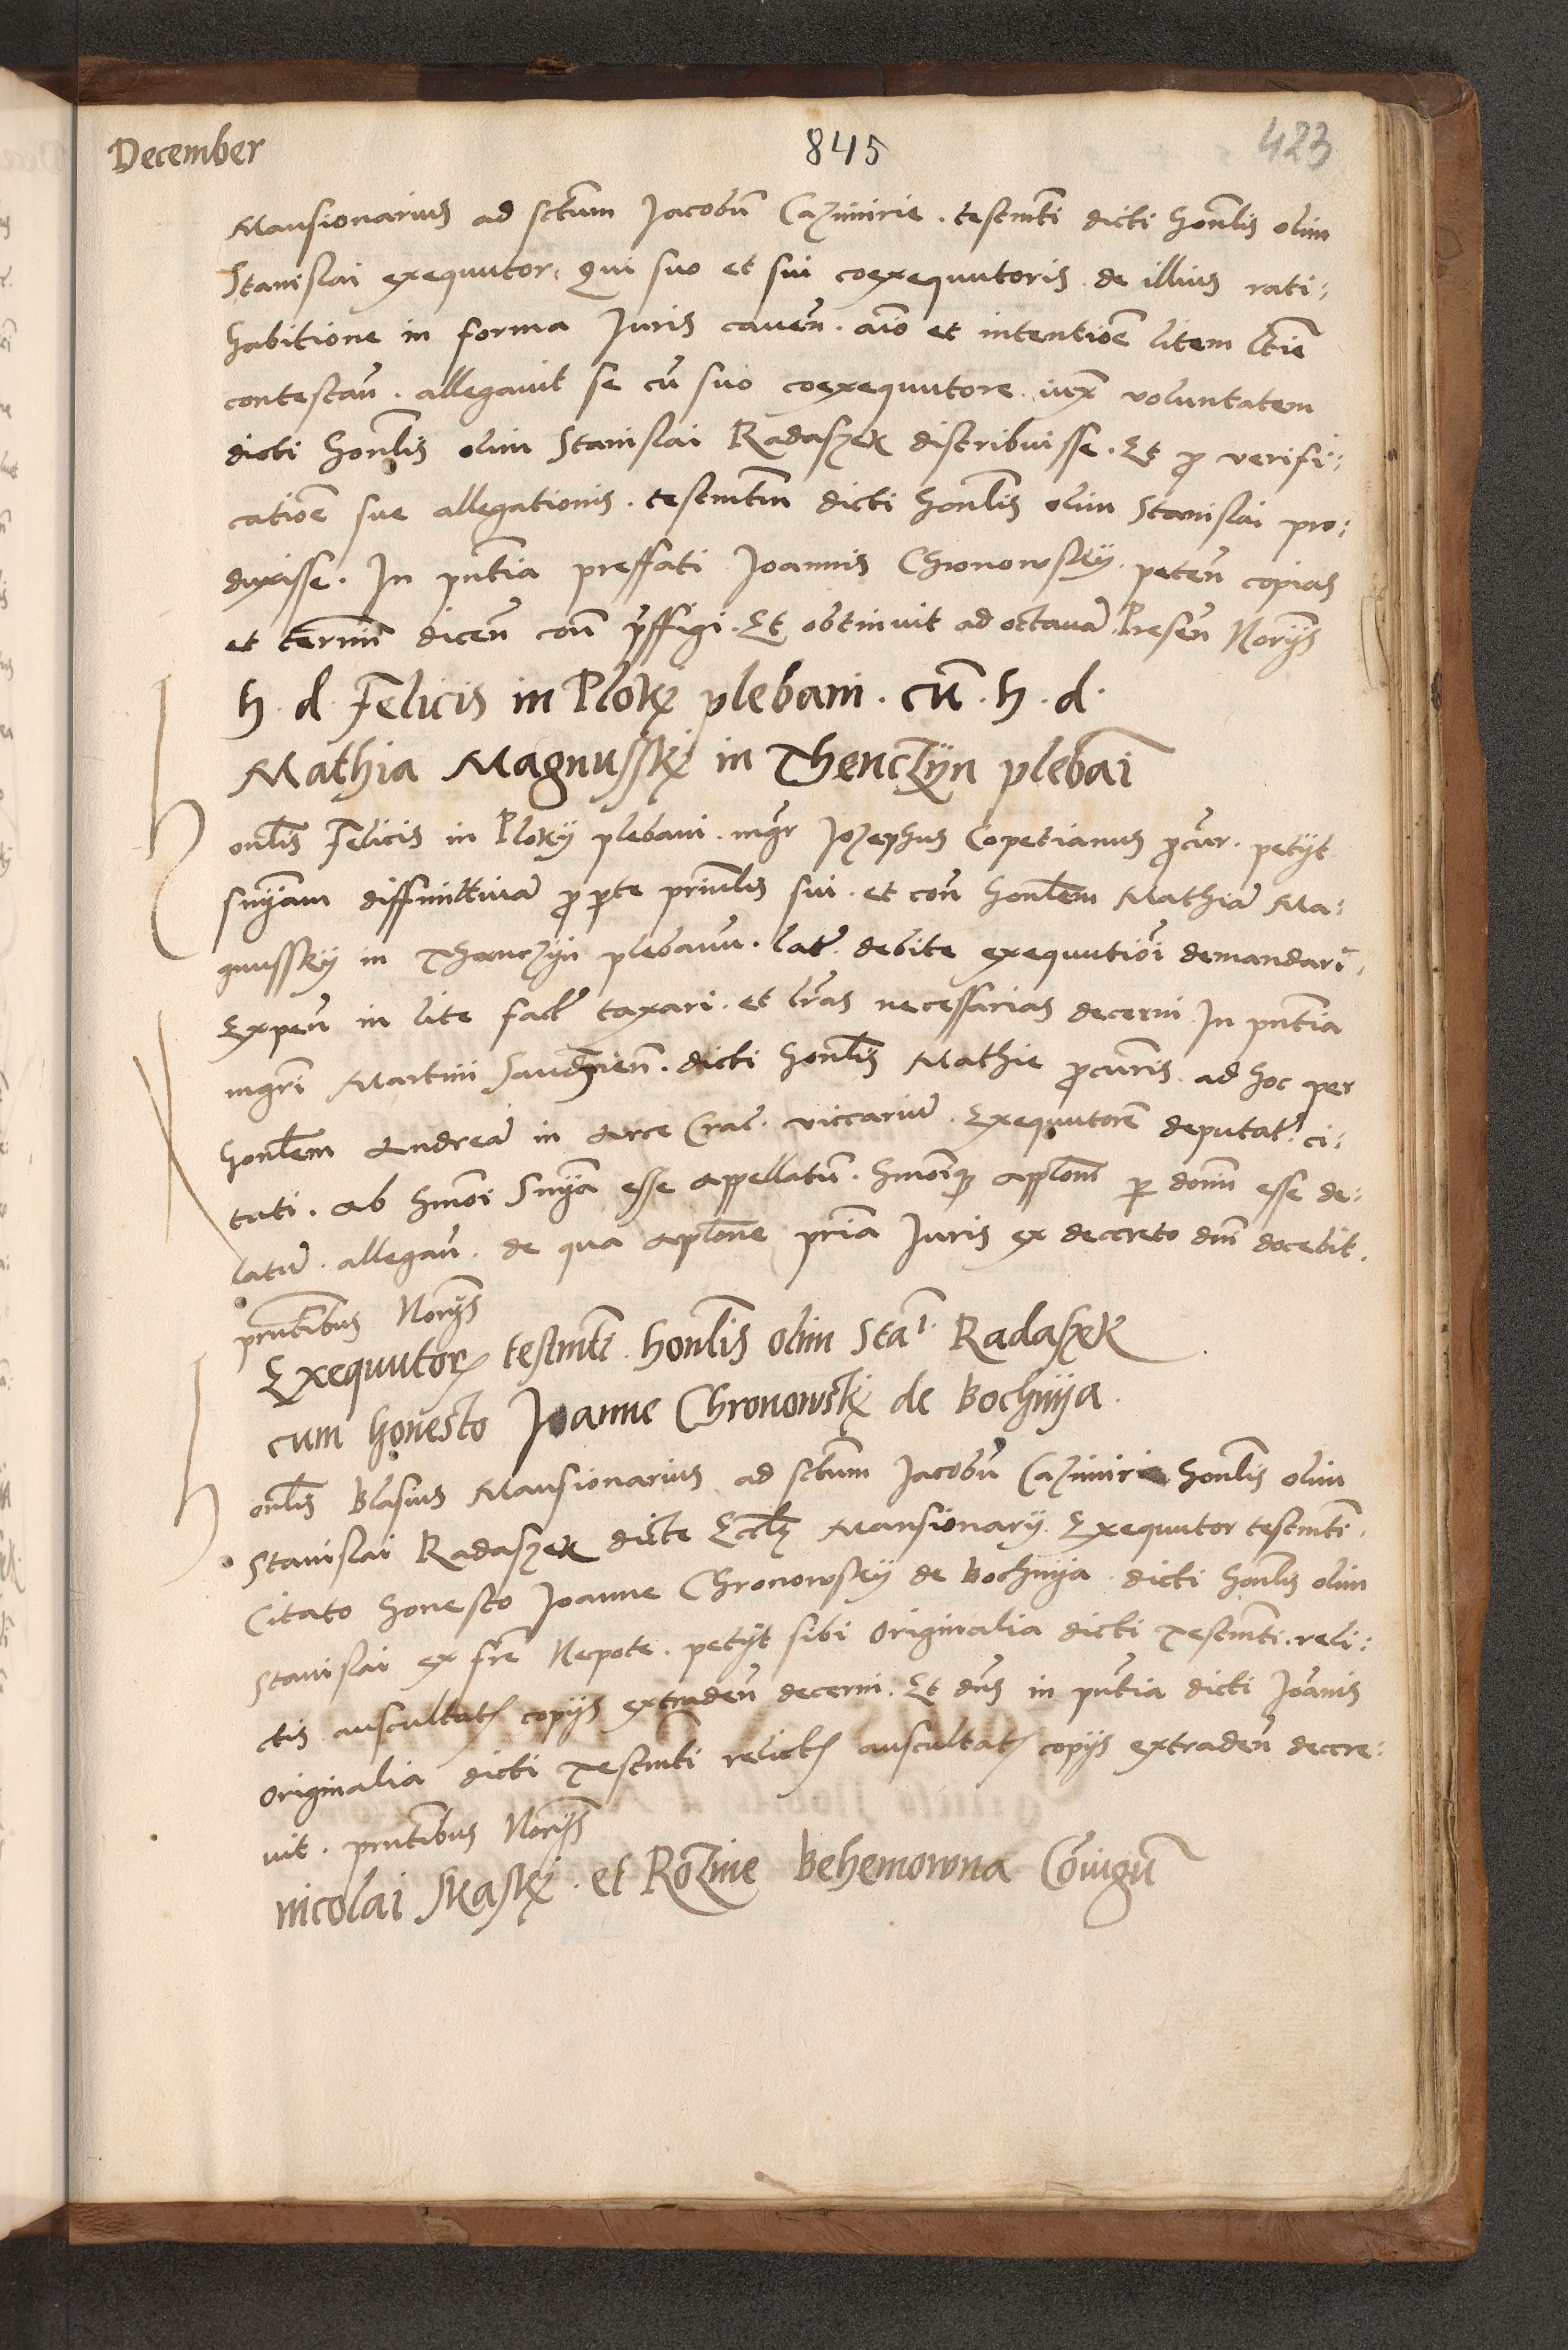 December
845
423
Mansionarius ad sctum Jacobū Cazimirie. testmti dicti honlis olim
Stanislai exequutor. Qui suo et sui coexequutoris de illius rati:
habitione in forma Juris cauen. aīo et intentiōe litem ltīe
contestan. allegauit se cū suo coexequutore. iux voluntatem
dicti honlis olim Stanislai Radaszek distribuisse. Et p verifi:
catiōe sue allegationis. testmtm dicti honlis olim Stanislai pro:
duxisse. In pntia preffati Joannis Chronowsky. peten copias
et termīn dicen con pffigi. Et obtinuit ad octauā. Presen Norijs
h. d. Felicis in Ploky plebani. cū. h. d.
Mathia Magnussky in Thenczyn plebāi
honlis Felicis in Ploky plebani. mgr Jozephus Copetianus pcur. petijt
snīam diffinitiuā p pte prinlis sui. et con honlem Mathiā Ma:
gnussky in Thenczyn plebanū. lat debite exequutiōi demandari.
Expen in lite fact taxari. et lras necessarias decerni In pntia
mgri Martini Sandzien. dicti honlis Mathie pcuris ad hoc per
honlem Andreā in Arce Crac. viccariū. Exequutorē deputat. ci:
tati. Ab hmōi Snīa esse appellatū. hmōiqз aplonē p donū esse de:
latū. allegan. de qua aplone pria Juris ex decreto dni docebit.
pntibus Norijs
Exequutor testmti honlis olim Stai Radaszek
cum honesto Joanne Chronowsky de Bochnija.
honlis Blasius Mansionarius ad sctum Jacobū Cazimirie honlis olim
Stanislai Radaszek dicte Eccle Mansionarij. Exequutor testmti.
Citato honesto Joanne Chronowsky de Bochnija. dicti honlis olim
Stanislai ex fre Nepote. petijt sibi Originalia dicti Testmti. reli:
ctis auscultat copijs extraden decerni. Et dns in pntia dicti Joānis
Originalia dicti Testmti relict auscultat copijs extraden decre:
uit. pntibus Norijs
Nicolai Skasky. et Rozine Behemowna Cōiugū